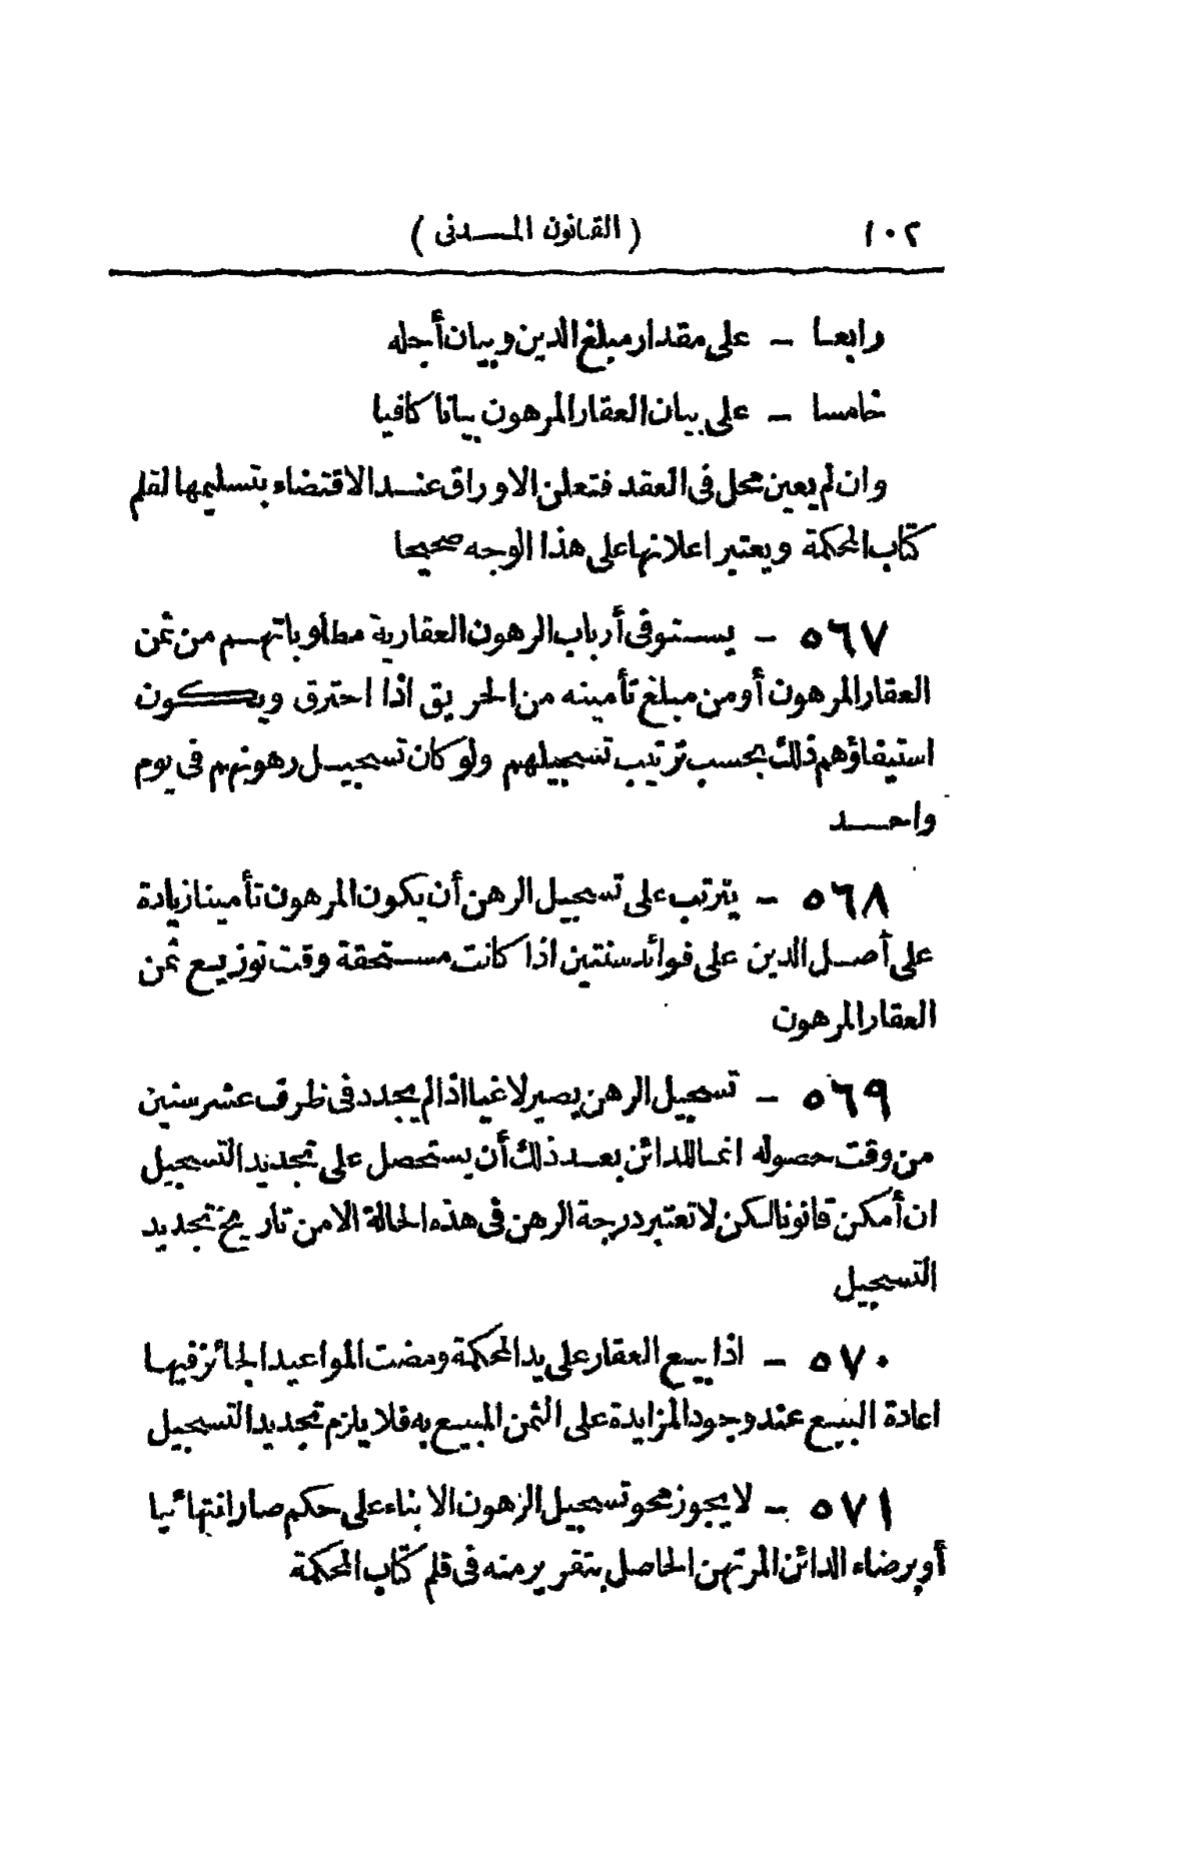 ١٠٢ ( القانون المدنى )
رابعا – على مقدار مبلغ الدين وبيان أجله
خامسا – على بيان العقار المرهون بيانا كافيا
وان لم يعين محل فى العقد فتعلن الاوراق عند الاقتضاء بتسليمها لقلم
كتاب المحكمة ويعتبر اعلانها على هذا الوجه صحيحا
٥٦٧ – يستوفى أرباب الرهون العقارية مطلوباتهم من ثمن
العقار المرهون أو من مبلغ تأمينه من الحريق اذا احترق ويكون
استيفاؤهم ذلك بحسب ترتيب تسجيلهم ولو كان تسجيل رهونهم فى يوم
واحد
٥٦٨ – يترتب على تسجيل الرهن أن يكون المرهون تأمينا زيادة
على أصل الدين على فوائد سنتين اذا كانت مستحقة وقت توزيع ثمن
العقار المرهون
٥٦٩ – تسجيل الرهن يصير لاغيا اذا لم يجدد فى ظرف عشر سنين
من وقت حصوله انما للدائن بعد ذلك أن يستحصل على تجديد التسجيل
ان أمكن قانونا لكن لا تعتبر درجة الرهن فى هذه الحالة الا من تاريخ تجديد
التسجيل
٥٧٠ – اذا بيع العقار على يد المحكمة ومضت المواعيد الجائز فيها
اعادة البيع عند وجود المزايدة على الثمن المبيع به فلا يلزم تجديد التسجيل
٥٧١ – لا يجوز محو تسجيل الرهون الا بناء على حكم صار انتهائيا
أو برضاء الدائن المرتهن الحاصل بتقرير منه فى قلم كتاب المحكمة